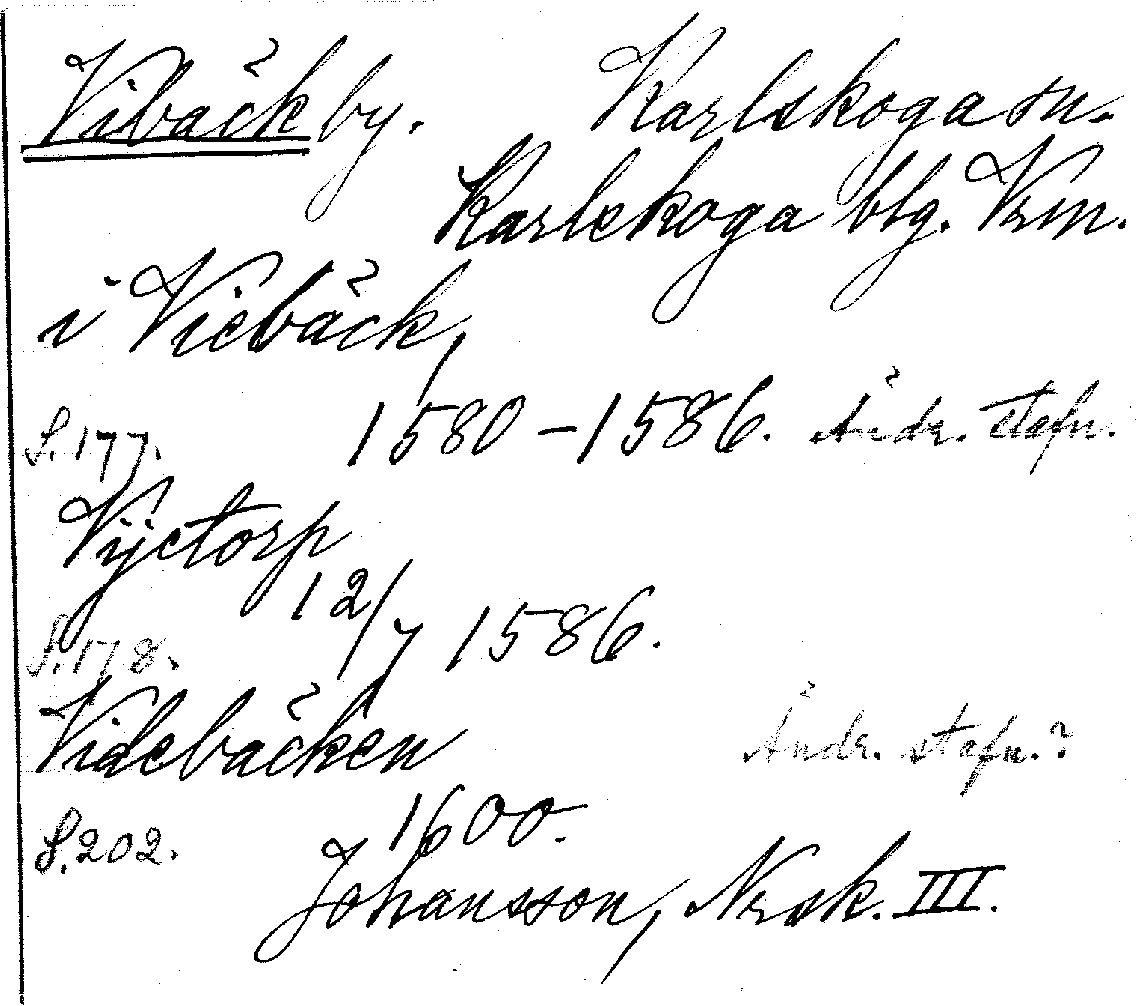 Vibäck by. Karlskoga sn.
Karlskoga blg. Vrm.
i Viebäck,
S. 177. 1580–1586. Ändr. stafn.
Vijctorp
S. 178. 12/7 1586.
Videbäcken Ändr. stafn.?
S. 202. 1600.
Johansson, Nrsk. III.